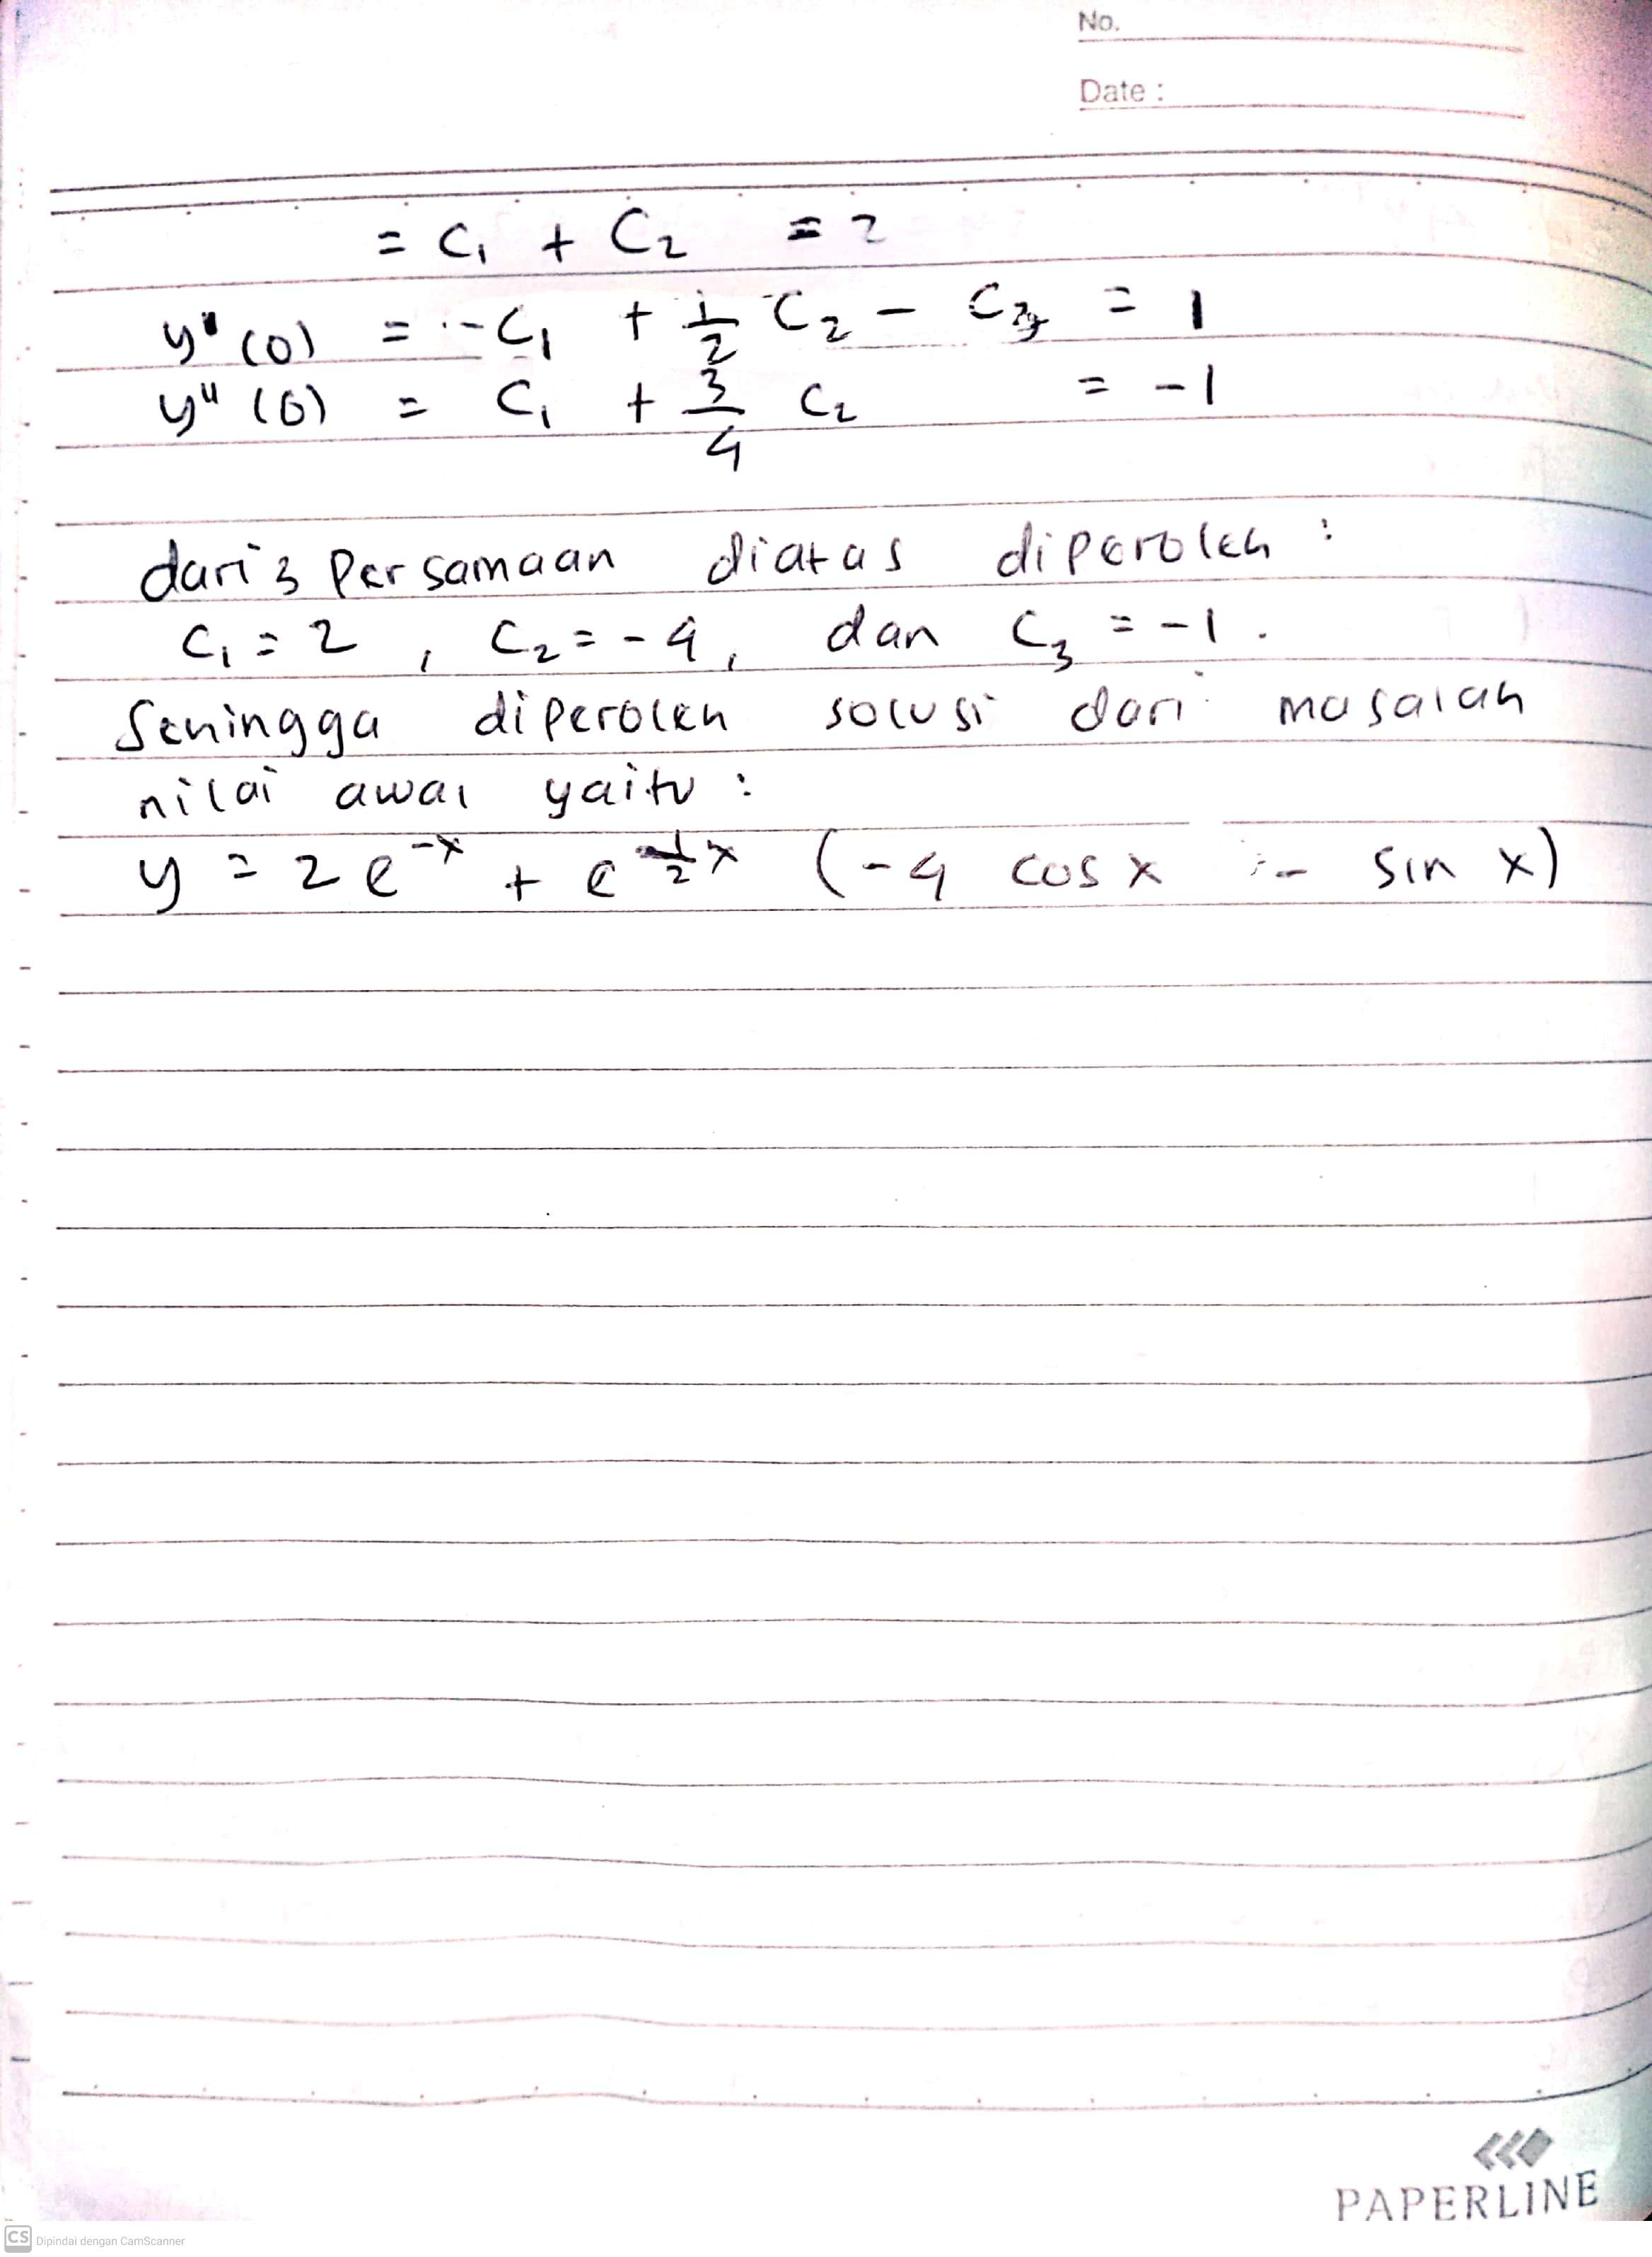 No.
Date :
= C₁ + C₂ = 2
y'(0) = -C₁ + 1/2 C₂ - C₃ = 1
y''(0) = C₁ + 3/4 C₂ = -1
dari 3 Persamaan diatas diperoleh :
C₁ = 2 , C₂ = -4, dan C₃ = -1 .
Sehingga diperoleh solusi dari masalah
nilai awal yaitu :
y = 2 e^-x + e^1/2 x (-4 cos x - sin x)
PAPERLINE
CS Dipindai dengan CamScanner